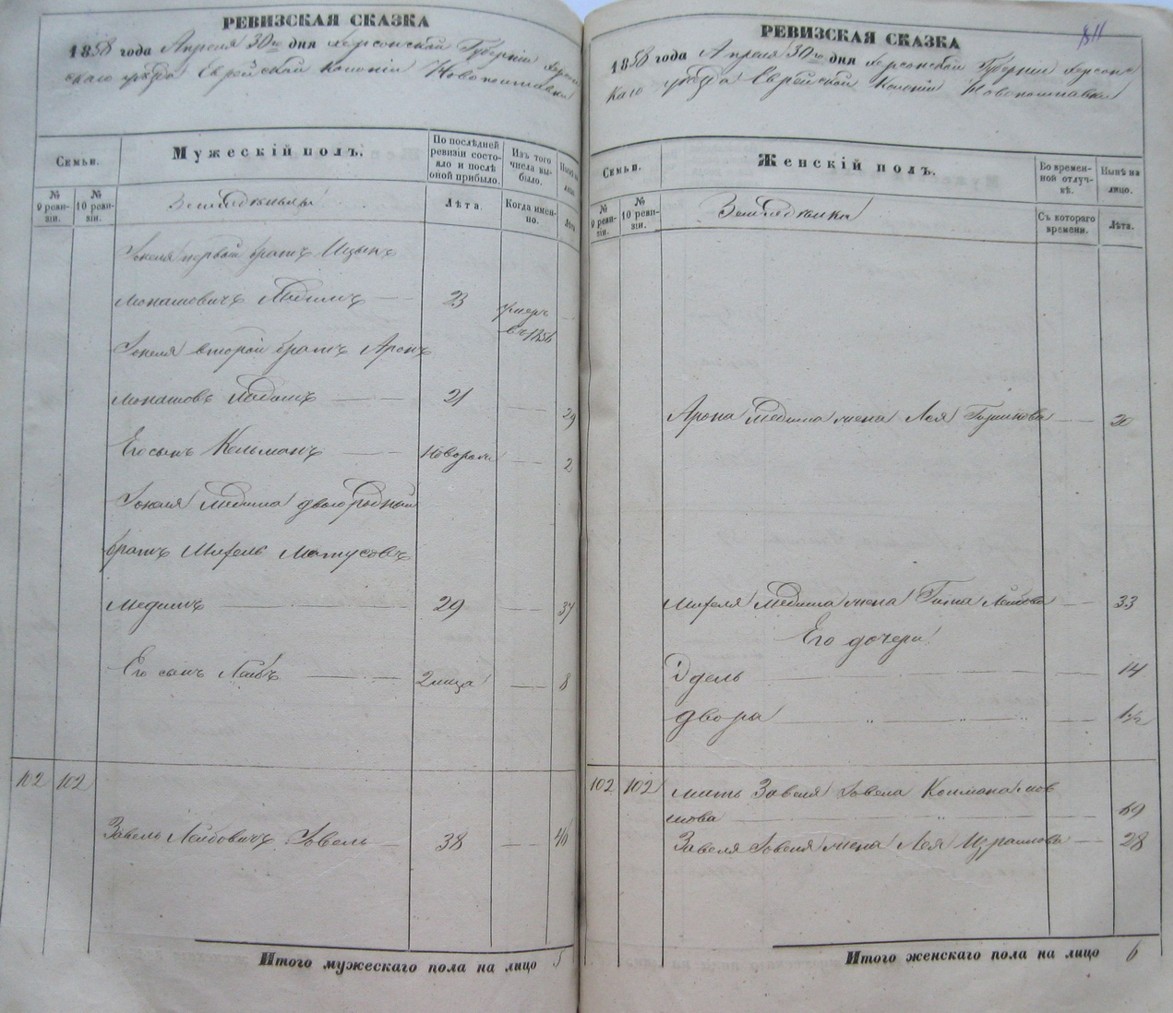 РЕВИЗСКАЯ СКАЗКА
1858 года Апреля 30го дня Херсонской Губернии Херсон
скаго уезда Еврейской Колонии Новополтавки
Семьи.
Мужескій полъ.
По послѣдней ревизіи состояло и послѣ оной прибыло.
Изъ того числа выбыло.
№ 9 ревизіи.
№ 10 ревизіи.
Лѣта.
Когда именно.
Лѣта
Іокеля первый братъ Ицыкъ
Монашовичъ 23 умеръ въ 1856
Іокеля второй братъ Аронъ
Монашовъ 21 29
Его сынъ Кельманъ новорож 2
Іокеля двоюродный
братъ Матусовъ
Медимъ 29 37
Его сынъ Лейбъ 2 месяца 8
102 102
Завель Лейбовичъ Іовель 38 46
Итого мужескаго пола на лицо 5
РЕВИЗСКАЯ СКАЗКА
1858 года Апреля 30го дня Херсонской Губернии Херсонс
каго уезда Еврейской Колонии Новополтавки
Семьи.
Женскій полъ.
Во временной отлучкѣ.
Нынѣ на лицо.
№ 9 ревизіи.
№ 10 ревизіи.
Съ котораго времени.
Лѣта.
Арона жена Лея 20
жена Лейбова 33
Его дочери
Эдель 14
Двойра 1½
102 102 мать Завеля Іовеля
69
Завеля Іовеля жена Лея Израилова 28
Итого женскаго пола на лицо 6